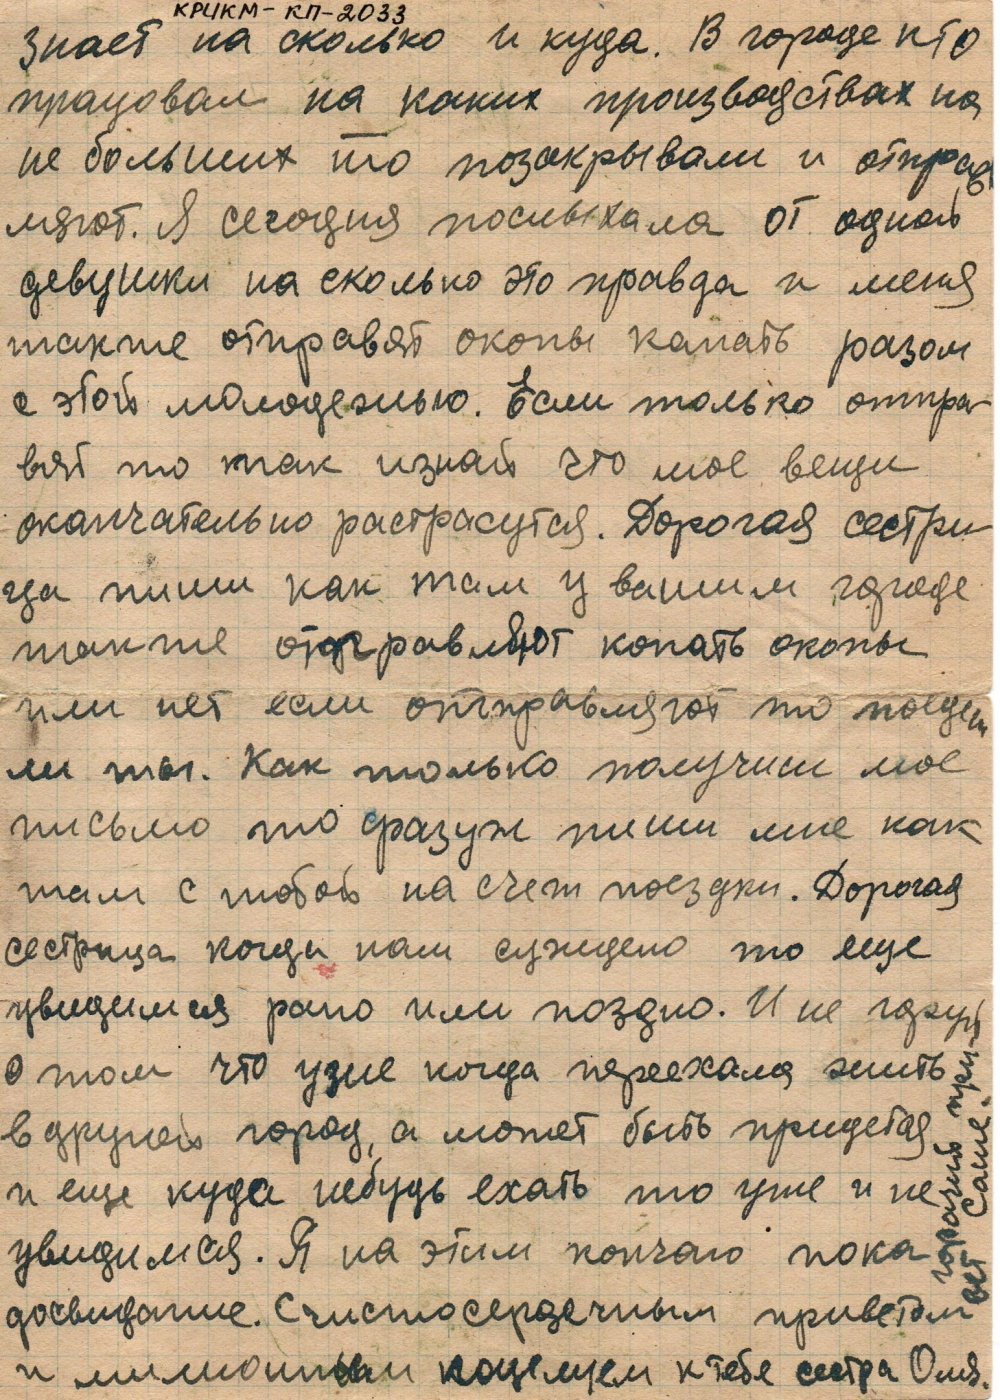 КРЦКМ-КП-2033
знает на сколько и куда. В городе кто
працовал на каких производствах на
не больших то позакрывали и отправ
ляют. Я сегодня послыхала от одной
девушки на сколько это правда и меня
также отправят окопы капать разом
с этой молодежью. Если только отпра-
вят то так и знай что мое вещи
оканчательно растрасутся. Дорогая сестри-
ца пиши как там у вашим городе
также отправляют копать окопы
или нет если отправляют то поедеш
ли ты. Как только получиш мое
письмо то сразуж пиши мне как
там с тобой на счет поездки. Дорогая
сестрица когда нам суждено то еще
увидимся рано или поздно. И не горюй
о том что уже когда переехала жить
в другой город, а может быть придется
и еще куда нибудь ехать то уже и не
увидимся. Я на этим кончаю пока
досвидание. С чистосердечным приветом
и милионным поцелуем к тебе сестра Оля.
горячий при-
вет Саше.